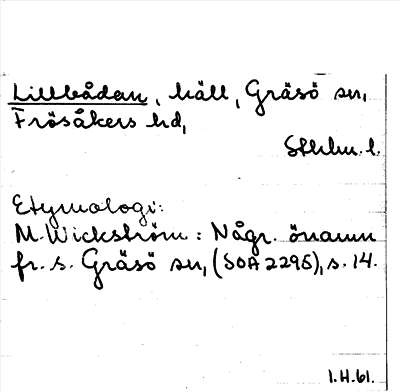 Lillbådan, häll, Gräsö sn,
Frösåkers hd,
Sthlm. l.
Etymologi:
M. Wickström: Någr. önamn
fr. s. Gräsö sn, (SOA 2295), s. 14.
I.H.61.